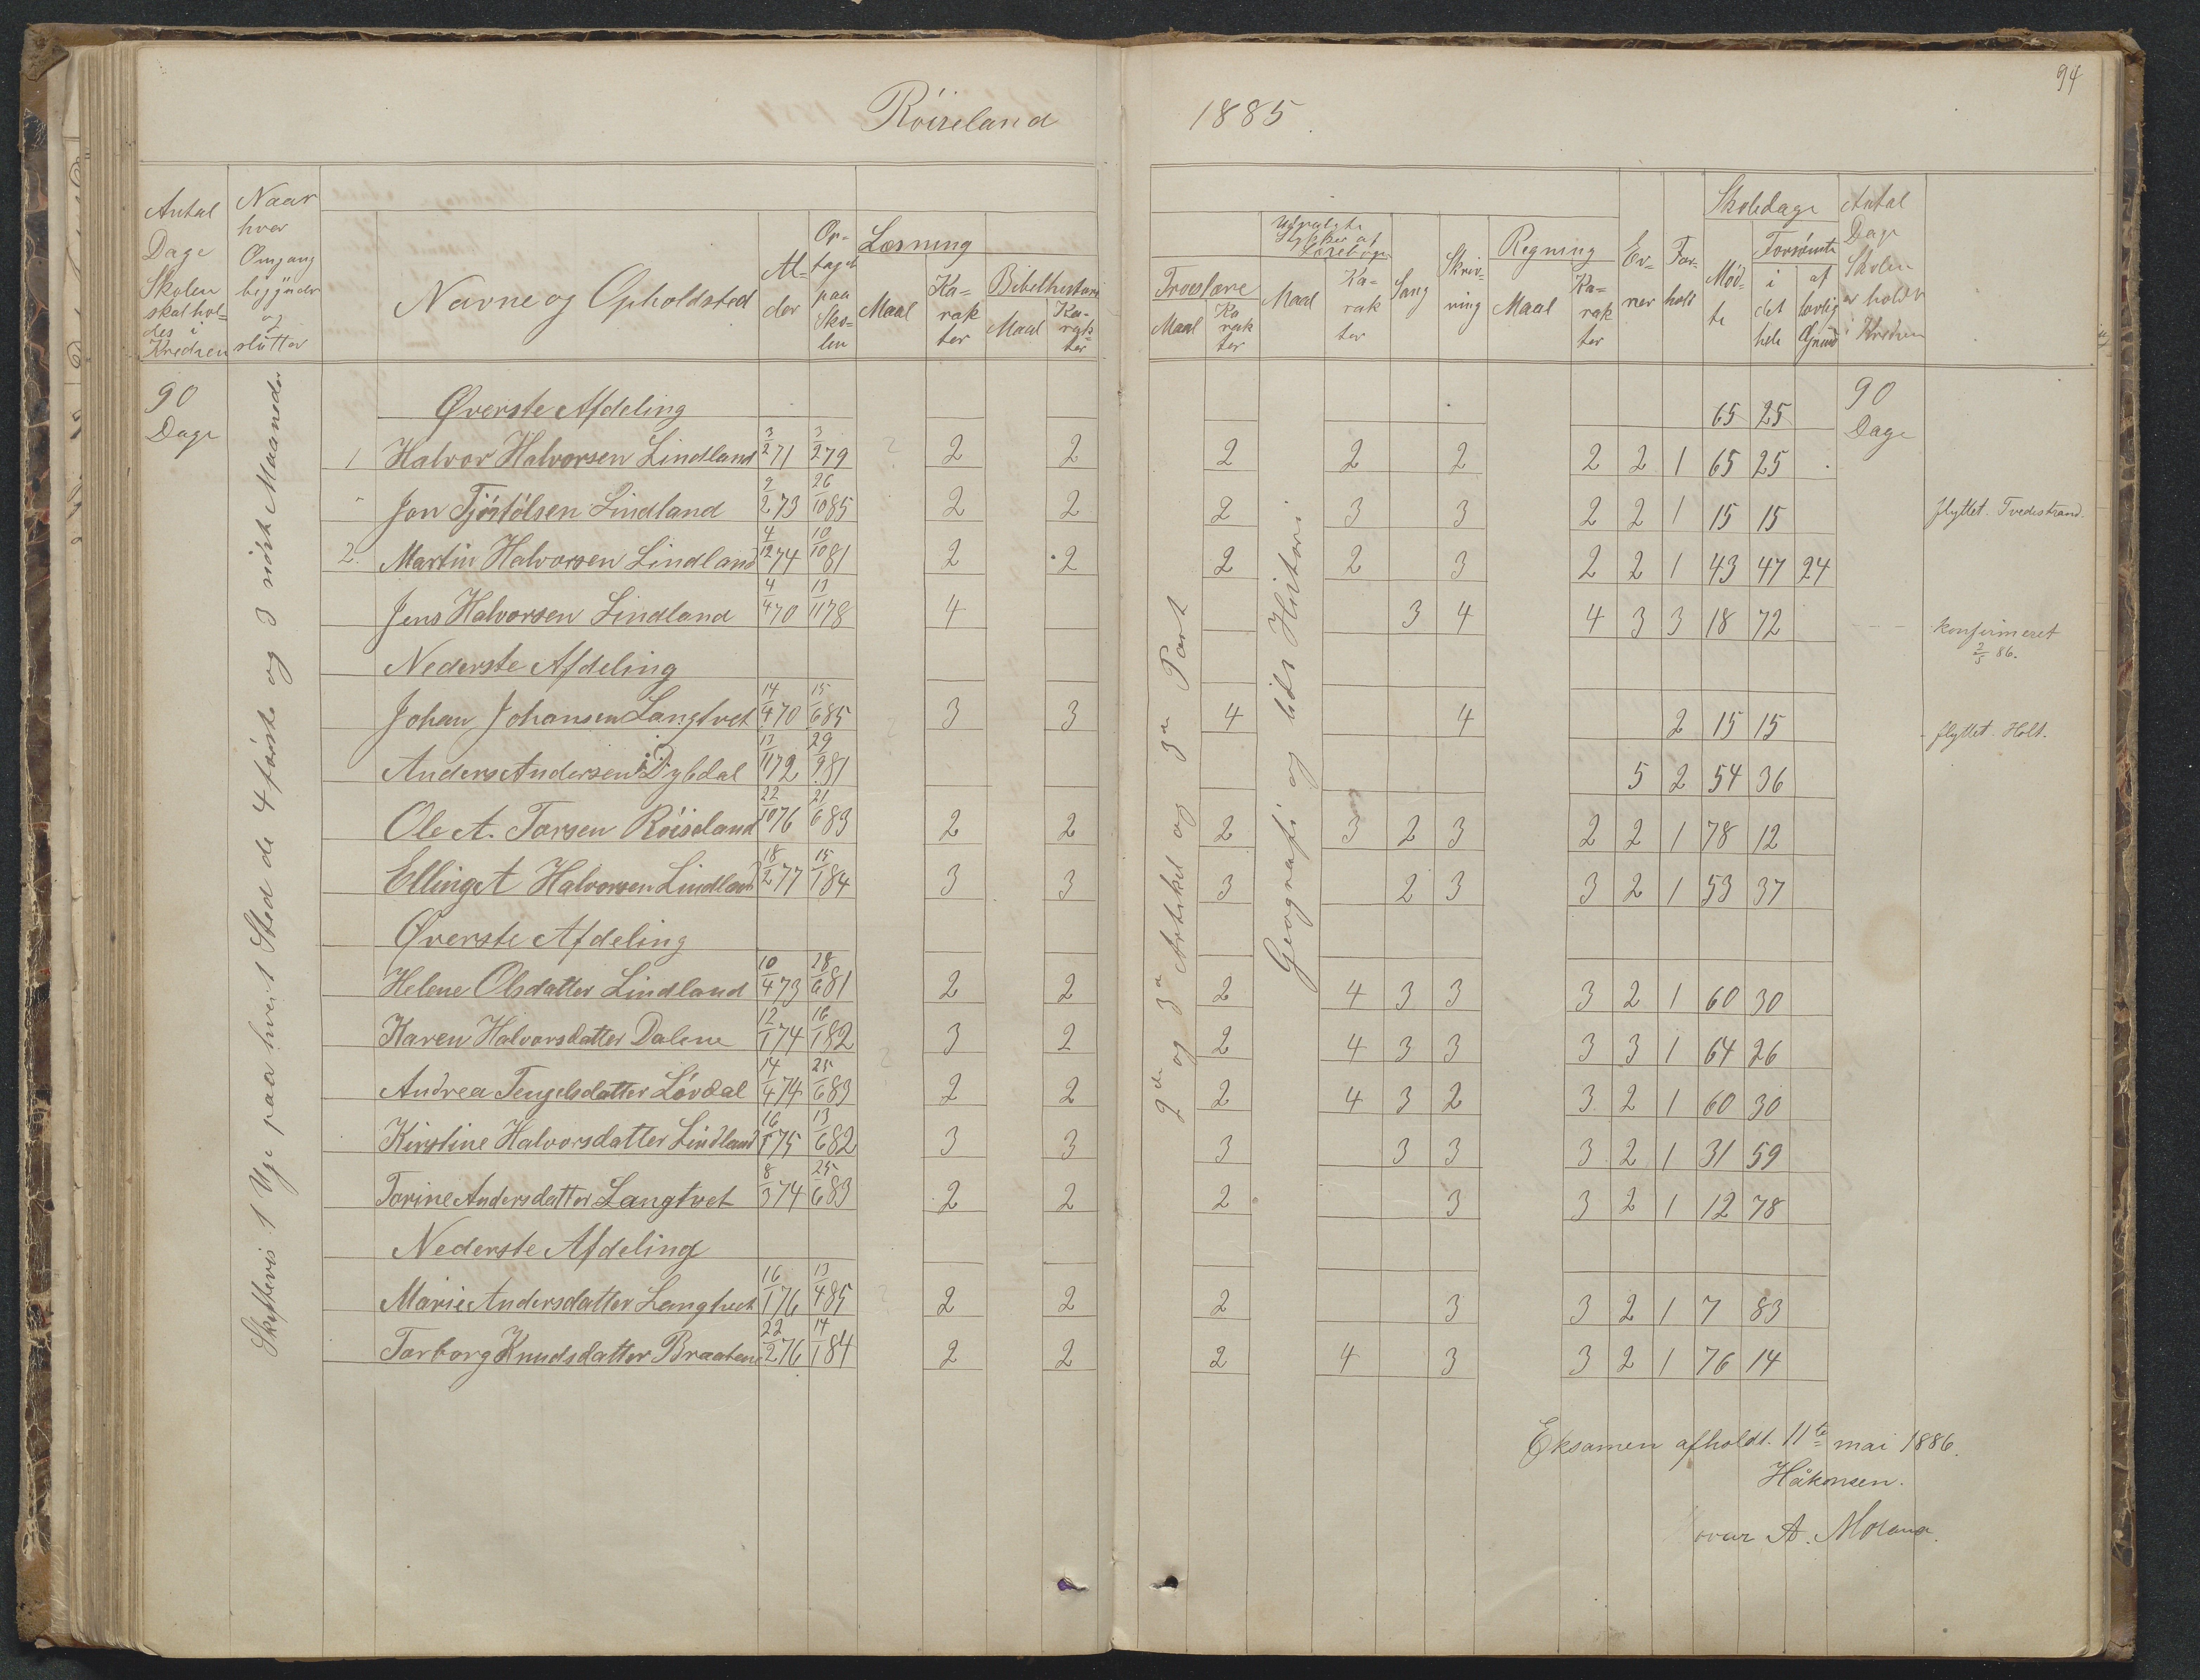 Röiseland 1885.
94
Antal Dage Skolen skal holdes i Kredsen
Naar hver Omgang begynder og slutter
Navne og Opholdsted
Alder
Optaget paa Skolen
Læsning
Maal
Karakter
Bibelhistorie
Maal
Karakter
Troeslære
Maal
Karakter
Udvalgte Stykker af Læsebogen
Maal
Karakter
Sang
Skrivning
Regning
Maal
Karakter
Evner
Forhold
Skoledage
Mødte
Forsømte
i det hele
af lovlig Grund
Antal Dage Skolen er holdt i Kredsen
90 Dage
Skiftevis 1 Uge paa hvert Sted de 4 første og 3 sidste Maaneder
2den og 3die Artikel og 3die Part
Geografi og lidt Historie
90 Dage
Øverste Afdeling 65 25
1 Halvor Halvorsen Lindland 3/2 71 3/2 79 2 2 2 2 2 2 2 1 65 25
Jon Tjöstölsen Lindland 9/2 73 26/10 85 2 2 2 3 3 2 2 1 15 15 flyttet Tvedestrand.
2. Martin Halvorsen Lindland 4/12 74 10/10 81 2 2 2 2 3 2 2 1 43 47 24
Jens Halvorsen Lindland 4/4 70 13/11 78 4 3 4 4 3 3 18 72 konfirmeret 2/5 86.
Nederste Afdeling
Johan Johansen Langtvet 14/4 70 15/6 85 3 3 4 4 2 15 15 flyttet Holt.
Anders Andersen Dybdal 13/11 72 29/9 81 5 2 54 36
Ole A. Tarsen Röiseland 22/10 76 21/6 83 2 2 2 3 2 3 2 2 1 78 12
Elling A Halvorsen Lindland 18/2 77 15/1 84 3 3 3 2 3 3 2 1 53 37
Øverste Afdeling
Helene Olsdatter Lindland 10/4 73 28/6 81 2 2 2 4 3 3 3 2 1 60 30
Karen Halvorsdatter Dalene 12/1 74 16/1 82 3 2 2 4 3 3 3 3 1 64 26
Andrea Tengelsdatter Lövdal 14/4 74 25/6 83 2 2 2 4 3 2 3 2 1 60 30
Kirstine Halvorsdatter Lindland 16/1 75 13/6 82 3 3 3 3 3 3 2 1 31 59
Torine Andersdatter Langtvet 8/3 74 25/6 83 2 2 2 3 3 2 1 12 78
Nederste Afdeling
Marie Andersdatter Langtvet 16/1 76 13/4 85 2 2 2 3 3 2 1 7 83
Torborg Knudsdatter Braatene 22/2 76 14/1 84 2 2 2 4 3 3 2 1 76 14
Eksamen afholdt 11te mai 1886.
Håkonsen.
A.